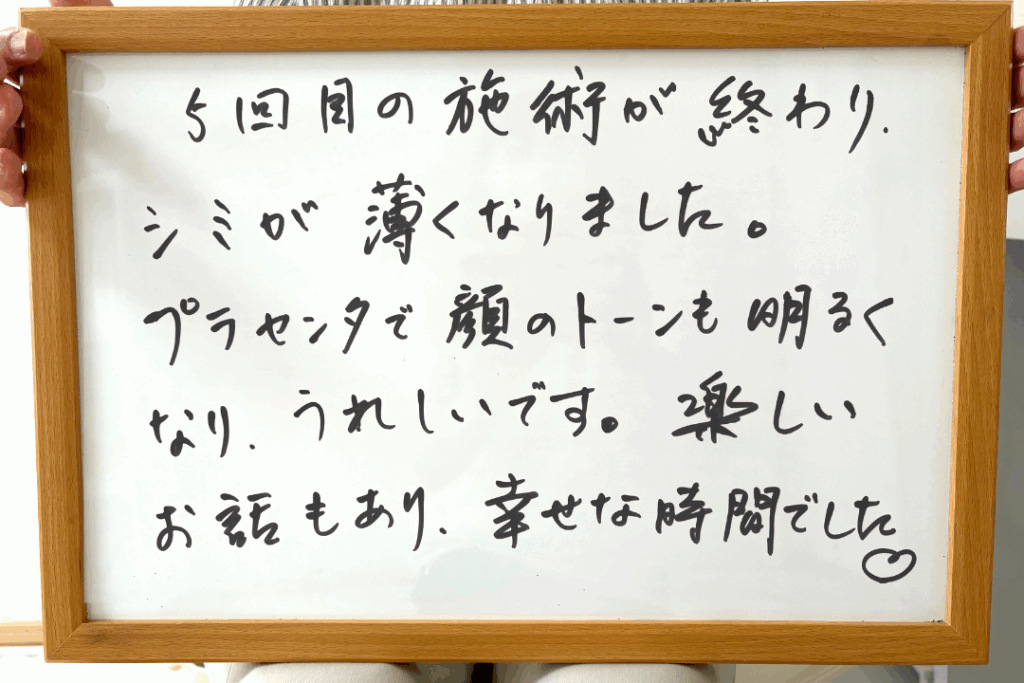 5回目の施術が終わり、
シミが薄くなりました。
プラセンタで顔のトーンも明るく
なり、うれしいです。楽しい
お話もあり、幸せな時間でした♡